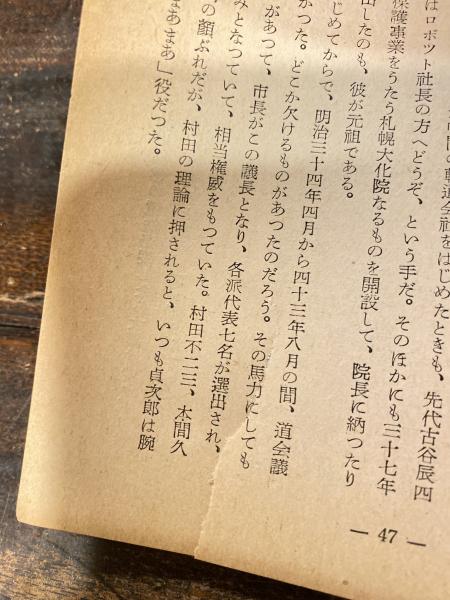 軌道会社をはじめたときも、先代古谷辰四
はロボツト社長の方へどうぞ、という手だ。そのほかにも三十七年
保護事業をうたう札幌大化院なるものを開設して、院長に納つたり
出したのも、彼が元祖である。
じめてからで、明治三十四年四月から四十三年八月の間、道会議
かつた。どこか欠けるものがあつたのだろう。その馬力にしても
があつて、市長がこの議長となり、各派代表七名が選出され、
みとなつていて、相当権威をもつていた。村田不二三、木間久
の顔ぶれだが、村田の理論に押されると、いつも貞次郎は腕
まあまあ」役だつた。
— 47 —